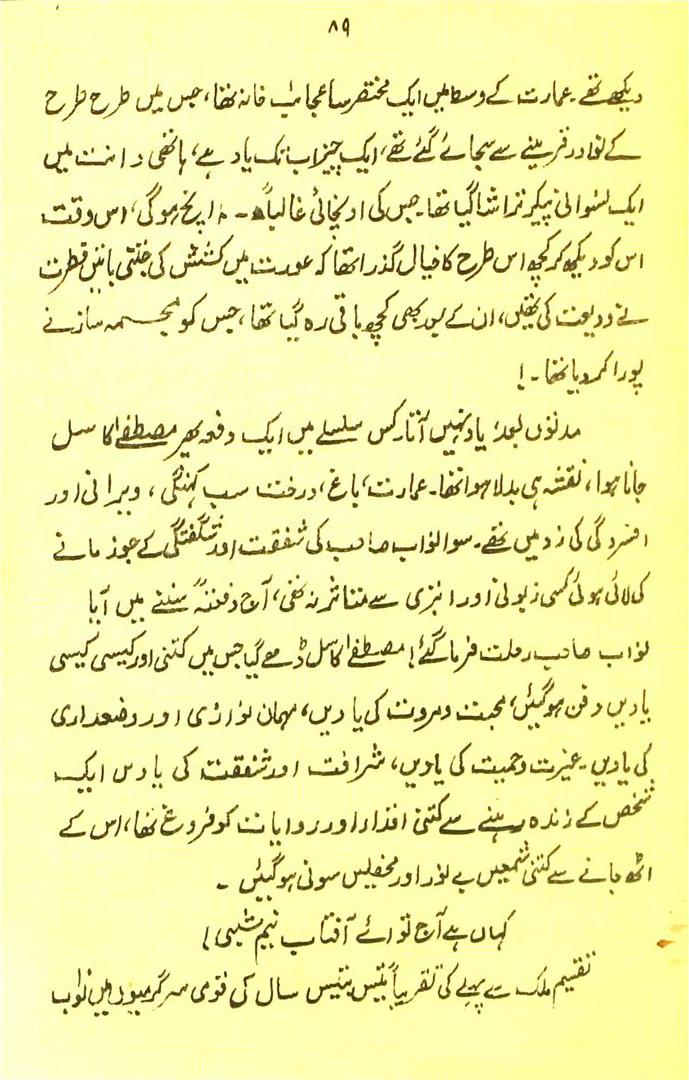 ۸۹
دیکھے تھے۔ عمارت کے وسط میں ایک مختصر سا عجائب خانہ تھا، جس میں طرح طرح
کے نوادر قرینے سے سجائے گئے تھے، ایک چیز اب تک یاد ہے، ہاتھی دانت میں
ایک نسوانی پیکر تراشا گیا تھا۔ جس کی اونچائی غالباً ۸-۱۰ انچ ہوگی، اس وقت
اس کو دیکھ کر کچھ اس طرح کا خیال گذرا تھا کہ عورت میں کشش کی جتنی باتیں فطرت
نے ودیعت کی تھیں، ان کے بعد بھی کچھ باقی رہ گیا تھا، جس کو مجسمہ ساز نے
پورا کر دیا تھا۔!
مدتوں بعد، یاد نہیں آتا کس سلسلے میں ایک دفعہ پھر مصطفےٰ کاسل
جانا ہوا، نقشہ ہی بدلا ہوا تھا۔ عمارت، باغ، درخت سب کہنگی، ویرانی اور
افسردگی کی زد میں تھے۔ سوا نواب صاحب کی شفقت اور شگفتگی کے جو زمانے
کی لائی ہوئی کسی زبونی اور ابتری سے متاثر نہ تھی، آج دفعتہً سننے میں آیا
نواب صاحب رحلت فرما گئے! مصطفےٰ کاسل ڈھے گیا جس میں کتنی اور کیسی کیسی
یادیں دفن ہوگئیں، محبت و مروت کی یادیں، مہمان نوازی اور وضعداری
کی یادیں۔ غیرت و حمیت کی یادیں، شرافت اور شفقت کی یادیں ایک
شخص کے زندہ رہنے سے کتنی اقدار اور روایات کو فروغ تھا، اس کے
اٹھ جانے سے کتنی شمعیں بے نور اور محفلیں سونی ہوگئیں۔
کہاں ہے آج تو اے آفتاب نیم شبی!
تقسیم ملک سے پہلے کی تقریباً تیس بتیس سال کی قومی سرگرمیوں میں نواب